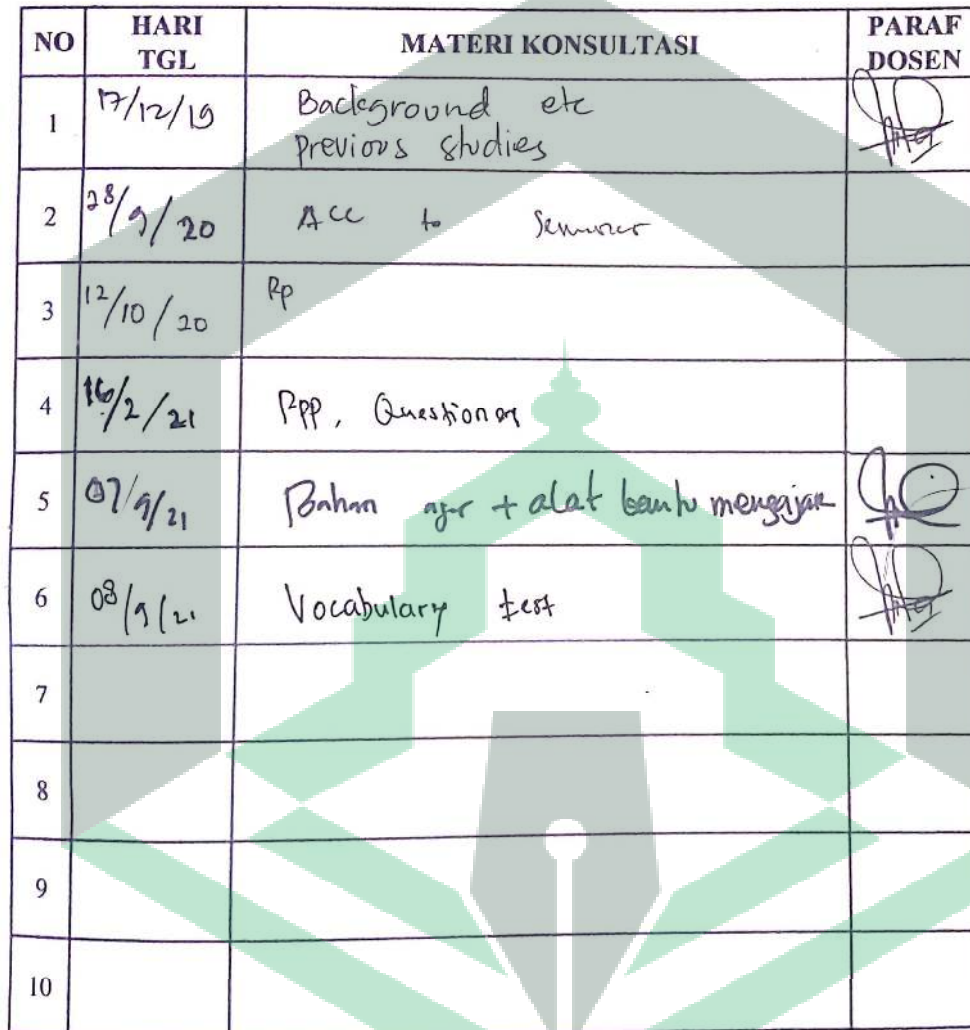 NO HARI TGL MATERI KONSULTASI PARAF DOSEN
1 17/12/19 Background etc
previous studies
2 28/9/20 Acc to
3 12/10/20 Rp
4 16/2/21 Rpp, Questioner
5 07/9/21 Bahan ajar + alat bantu mengajar
6 08/9/21 Vocabulary test
7
8
9
10